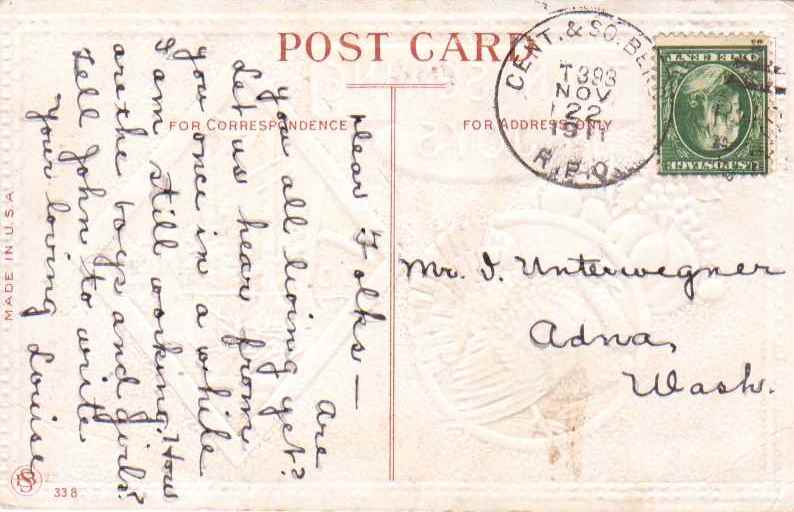 POST CARD
FOR CORRESPONDENCE
FOR ADDRESS ONLY
CENT. & SO. BEND
T 393
NOV
22
1911
R.P.O.
U.S. POSTAGE
Dear Folks —
Are
you all living yet?
Let us hear from
you once in a while
I am still working. How
are the boys and girls?
Tell John to write
Your loving Louise
Mr. I. Unterwegner
Adna,
Wash.
MADE IN U.S.A
338